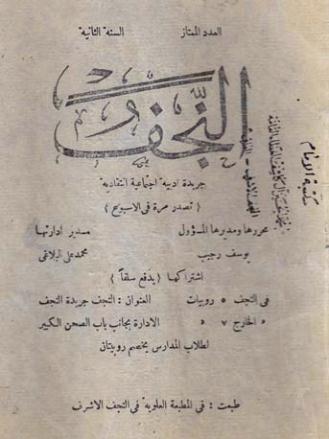 العدد الممتاز السنة الثانية
النجف
جريدة ادبية اجتماعية انتقادية
( تصدر مرة فى الاسبوع )
محررها ومديرها المسؤول مدير ادارتها
يوسف رجيب محمد علي البلاغي
اشتراكها ( يدفع سلفاً )
فى النجف ٥ روبيات العنوان : النجف جريدة النجف
« الخارج ٧ » الادارة بجانب باب الصحن الكبير
لطلاب المدارس يخصم روبيتان
طبعت : فى المطبعة العلوية فى النجف الاشرف
مكتبة الامام